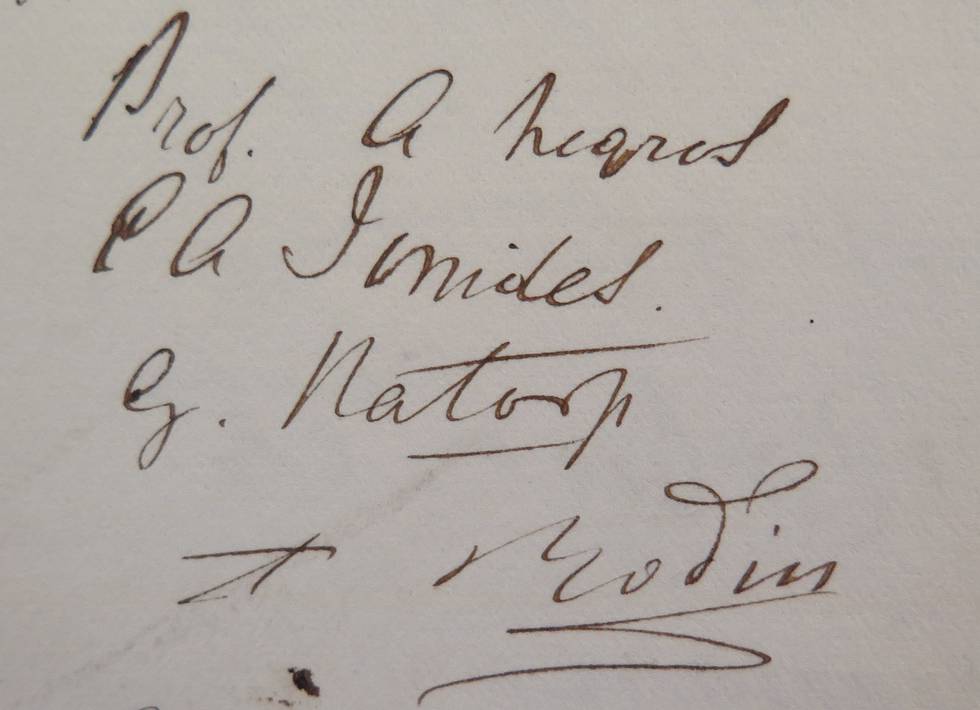 Prof. A Legros
C A Ionides.
G. Natorp
A Rodin